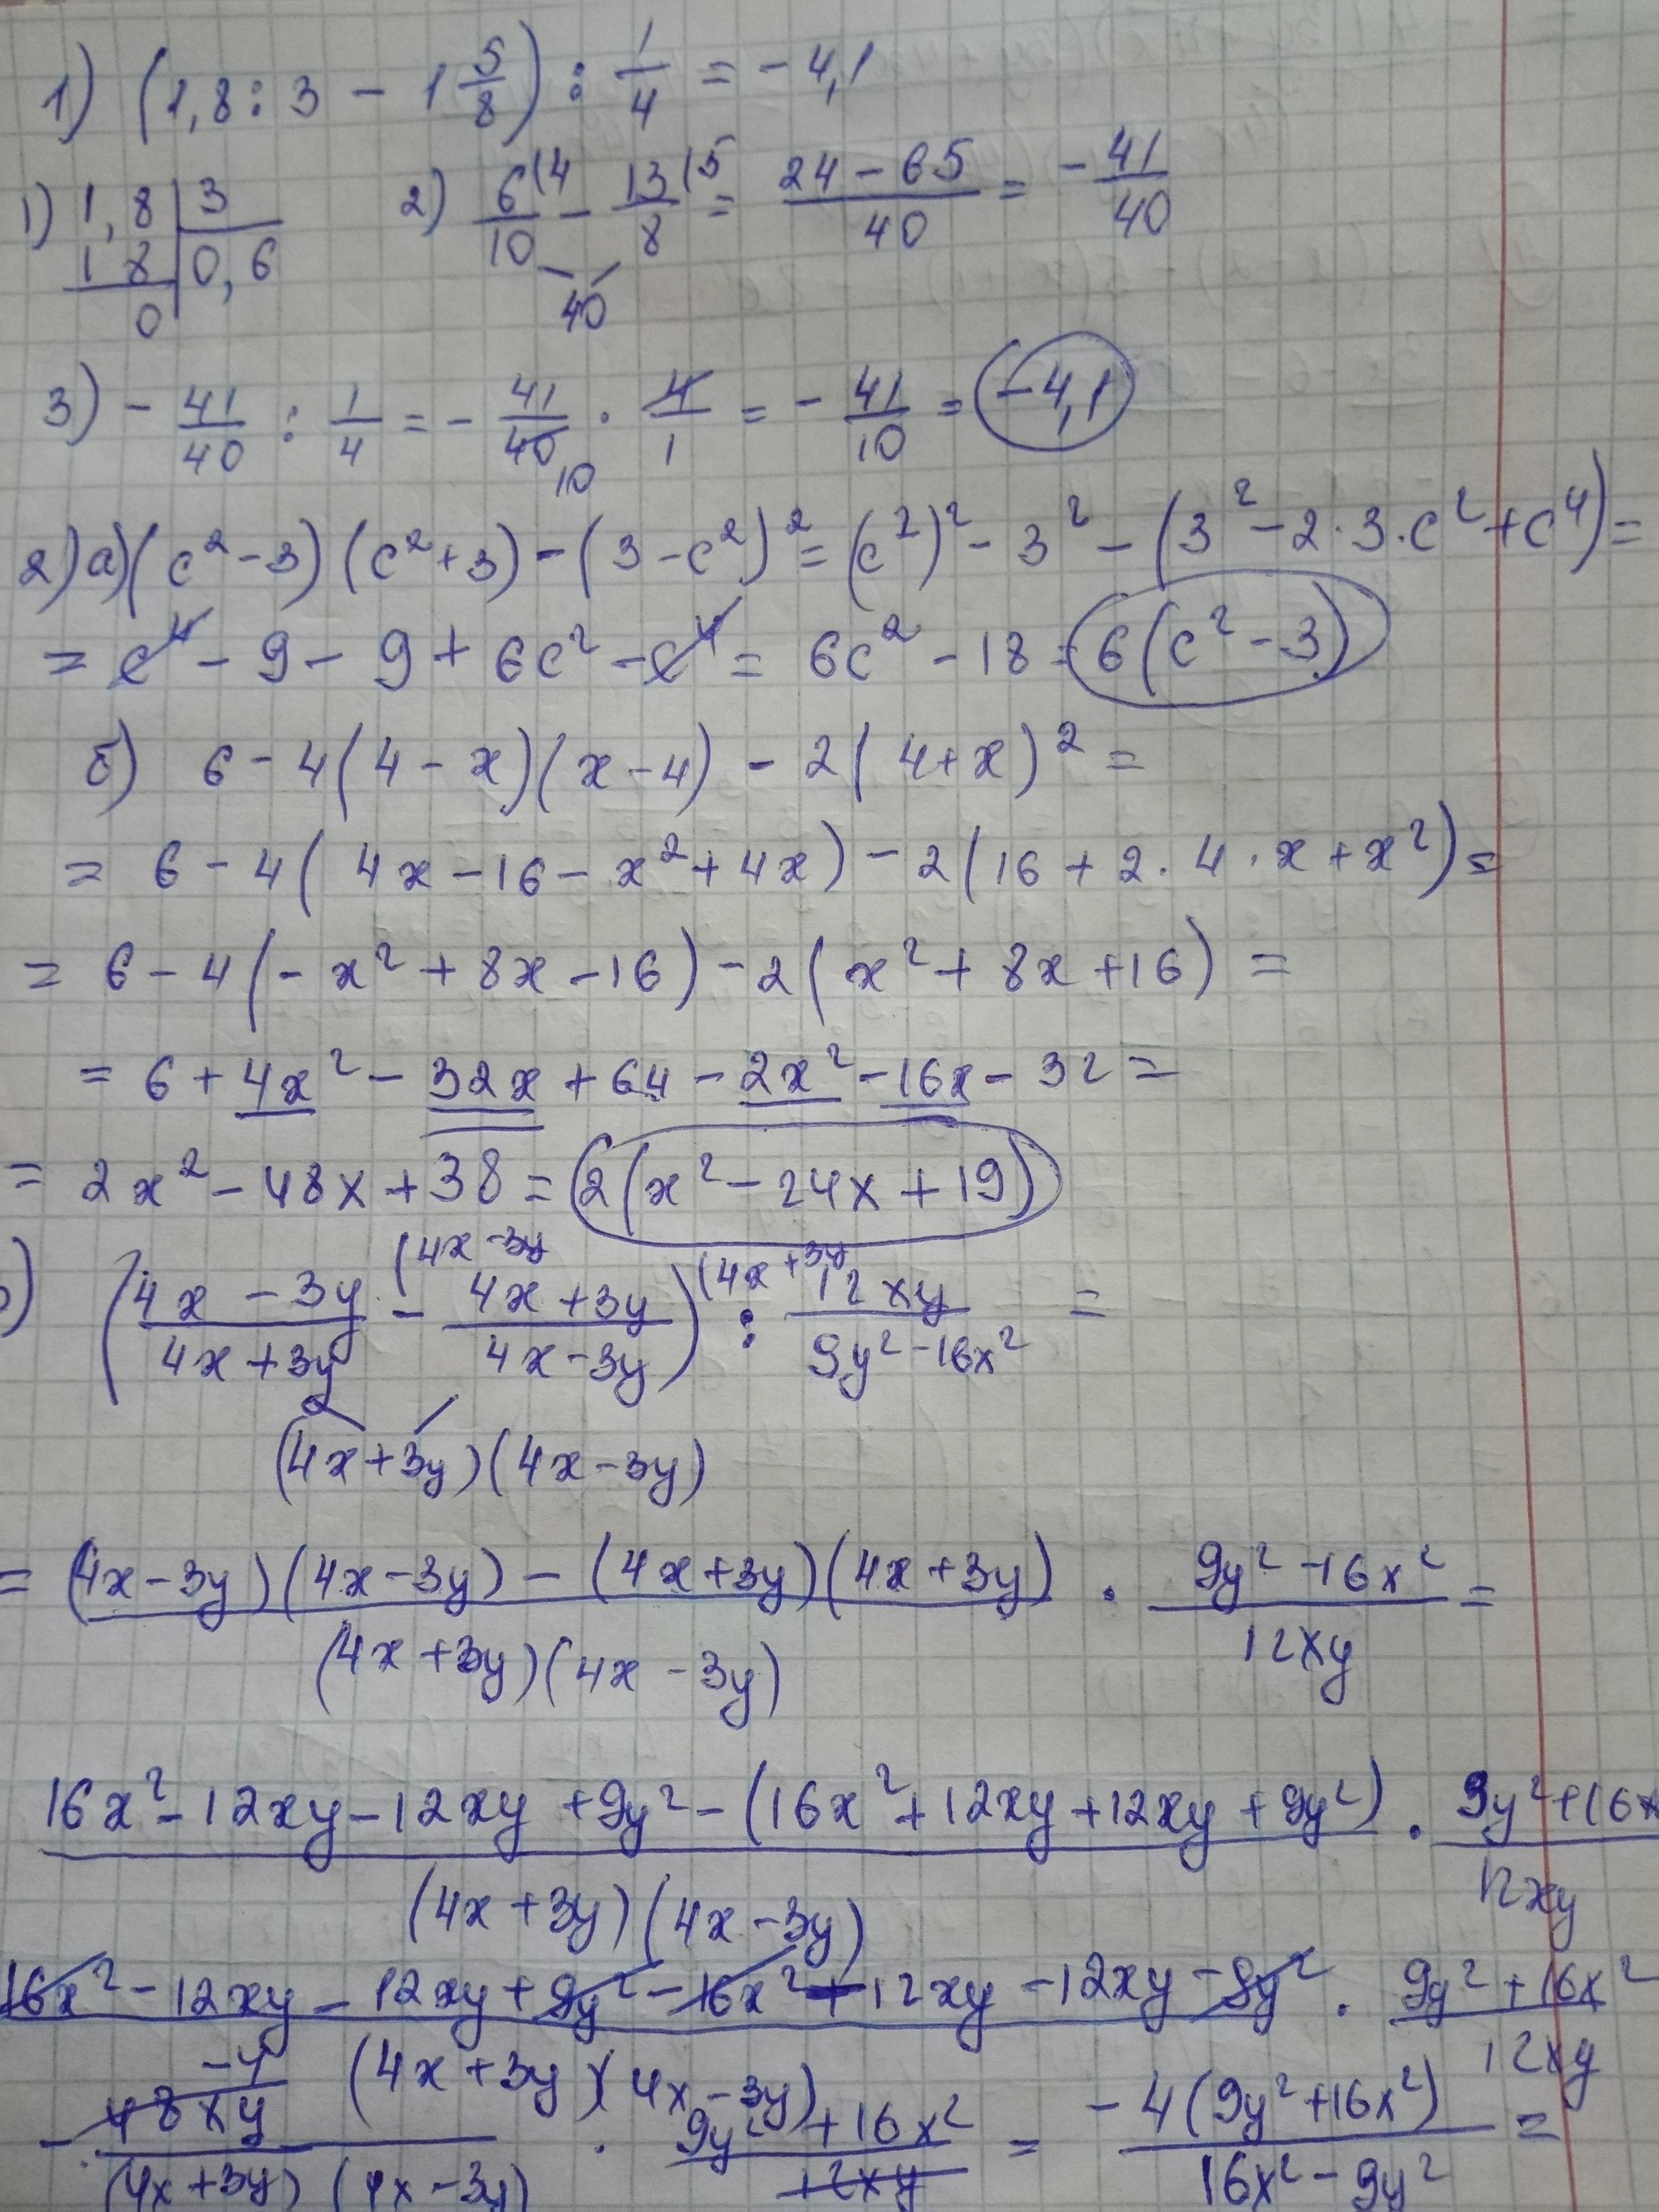 1) (1,8 : 3 − 1 5/8) : 1/4 = −4,1
1) 1,8 | 3
18 | 0,6
0
2) 6(4/10 − 13(5/8 = (24 − 65)/40 = −41/40
40
3) −41/40 : 1/4 = −41/40 · 4/1 = −41/10 = −4,1
10
2) а) (c² − 3)(c² + 3) − (3 − c²)² = (c²)² − 3² − (3² − 2·3·c² + c⁴) =
= c⁴ − 9 − 9 + 6c² − c⁴ = 6c² − 18 = 6(c² − 3)
б) 6 − 4(4 − x)(x − 4) − 2(4 + x)² =
= 6 − 4(4x − 16 − x² + 4x) − 2(16 + 2·4·x + x²) =
= 6 − 4(−x² + 8x − 16) − 2(x² + 8x + 16) =
= 6 + 4x² − 32x + 64 − 2x² − 16x − 32 =
= 2x² − 48x + 38 = 2(x² − 24x + 19)
(4x − 3y (4x + 3y
) ((4x − 3y)/(4x + 3y) − (4x + 3y)/(4x − 3y)) : 12xy/(9y² − 16x²) =
(4x + 3y)(4x − 3y)
= ((4x − 3y)(4x − 3y) − (4x + 3y)(4x + 3y))/((4x + 3y)(4x − 3y)) · (9y² − 16x²)/12xy =
(16x² − 12xy − 12xy + 9y² − (16x² + 12xy + 12xy + 9y²))/((4x + 3y)(4x − 3y)) · (9y² + 16x/12xy
(16x² − 12xy − 12xy + 9y² − 16x² − 12xy − 12xy − 9y²)/((4x + 3y)(4x − 3y)) · (9y² + 16x²)/12xy
−4
− 48xy/((4x + 3y)(4x − 3y)) · (9y² + 16x²)/12xy = −4(9y² + 16x²)/(16x² − 9y²) =